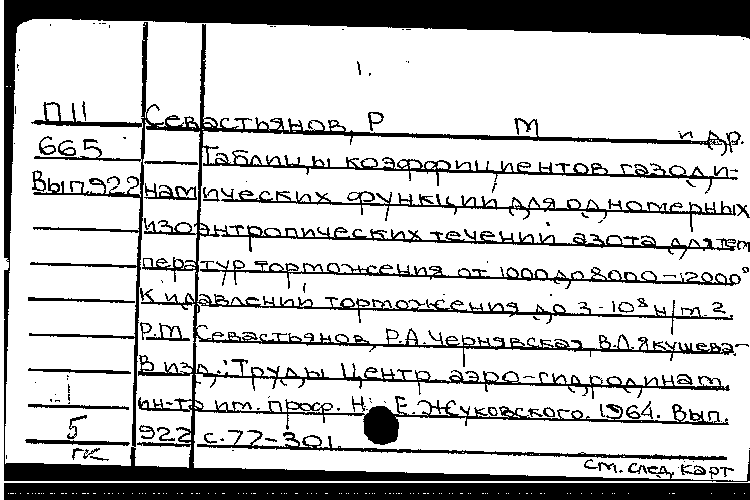 1.
П 11 Севастьянов, Р М и др.
665 Таблицы коэффициентов газоди-
Вып.922 намических функции для одномерных
изоэнтропических течений азота для тем
ператур торможения от 1000 до 8000-12000°
К и давлений торможения до 3·10⁸ н/m.2.
Р.М. Севастьянов, Р.А. Чернявская, В.Л. Якушева-
В изд.: Труды Центр. аэро-гидродинам.
ин-та им. проф. Н. Е. Жуковского. 1964. Вып.
5 922 с.77-301.
гк см. след. карт